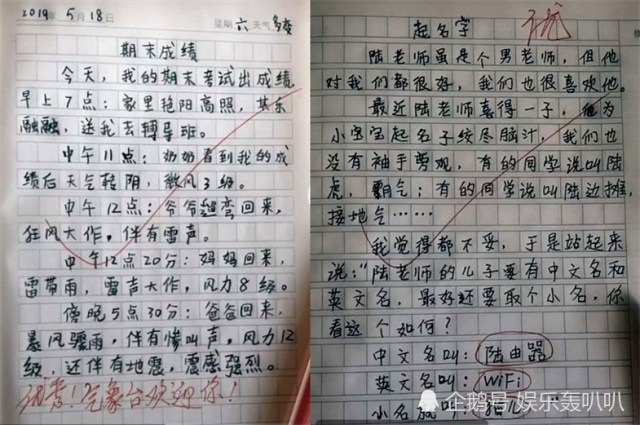 2019年5月18日 星期六 天气多变
期末成绩
今天，我的期末考试出成绩。
早上7点：家里艳阳高照，其乐
融融，送我去辅导班。
中午11点：奶奶看到我的成
绩后天气转阴，微风3级。
中午12点：爷爷遛弯回来，
狂风大作，伴有雷声。
中午12点20分：妈妈回来，
雷带雨，雷声大作，风力8级。
傍晚5点30分：爸爸回来，
暴风骤雨，伴有惨叫声，风力12
级，还伴有地震，震感强烈。
气象台欢迎你！
起名字
陆老师虽是个男老师，但他
对我们都很好，我们也很喜欢他。
最近陆老师喜得一子，他为
小宝宝起名子绞尽脑汁，我们也
没有袖手旁观，有的同学说叫陆
虎，霸气；有的同学说叫陆边摊，
接地气……
我觉得都不妥，于是站起来
说：“陆老师的儿子要有中文名和
英文名，最好还要取个小名，你
看这个如何？
中文名叫：陆由器
英文名叫：WiFi
小名就叫：猫儿
企鹅号/娱乐轰叭叭